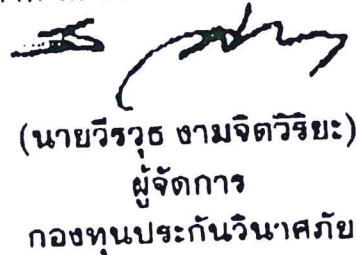 (นายวีรวุธ งามจิตวิริยะ)
ผู้จัดการ
กองทุนประกันวินาศภัย